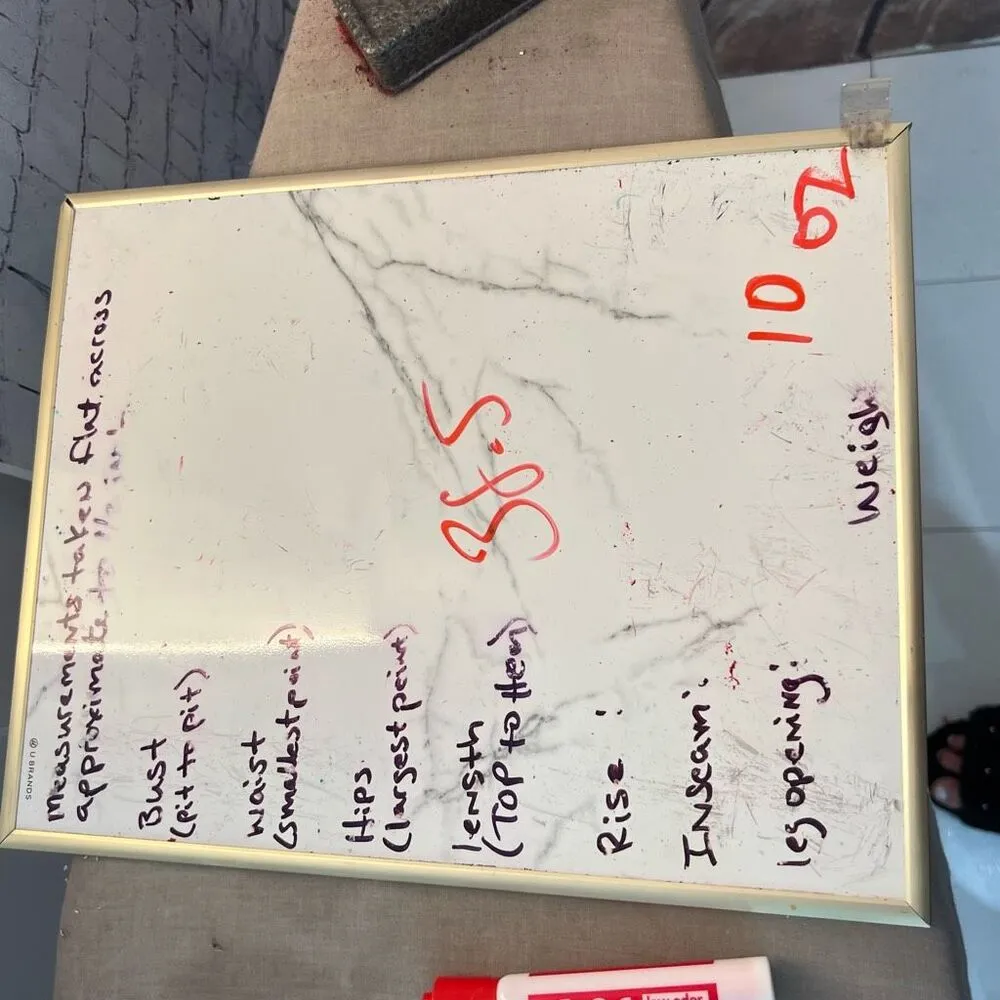 Measurements taken flat across
approximate to the inch
Bust
(pit to pit)
Waist
(smallest point)
Hips
(largest point)
length
(TOP to Hem)
38.5
Rise:
Inseam:
leg opening:
Weigh
10 oz
U BRANDS
low odor